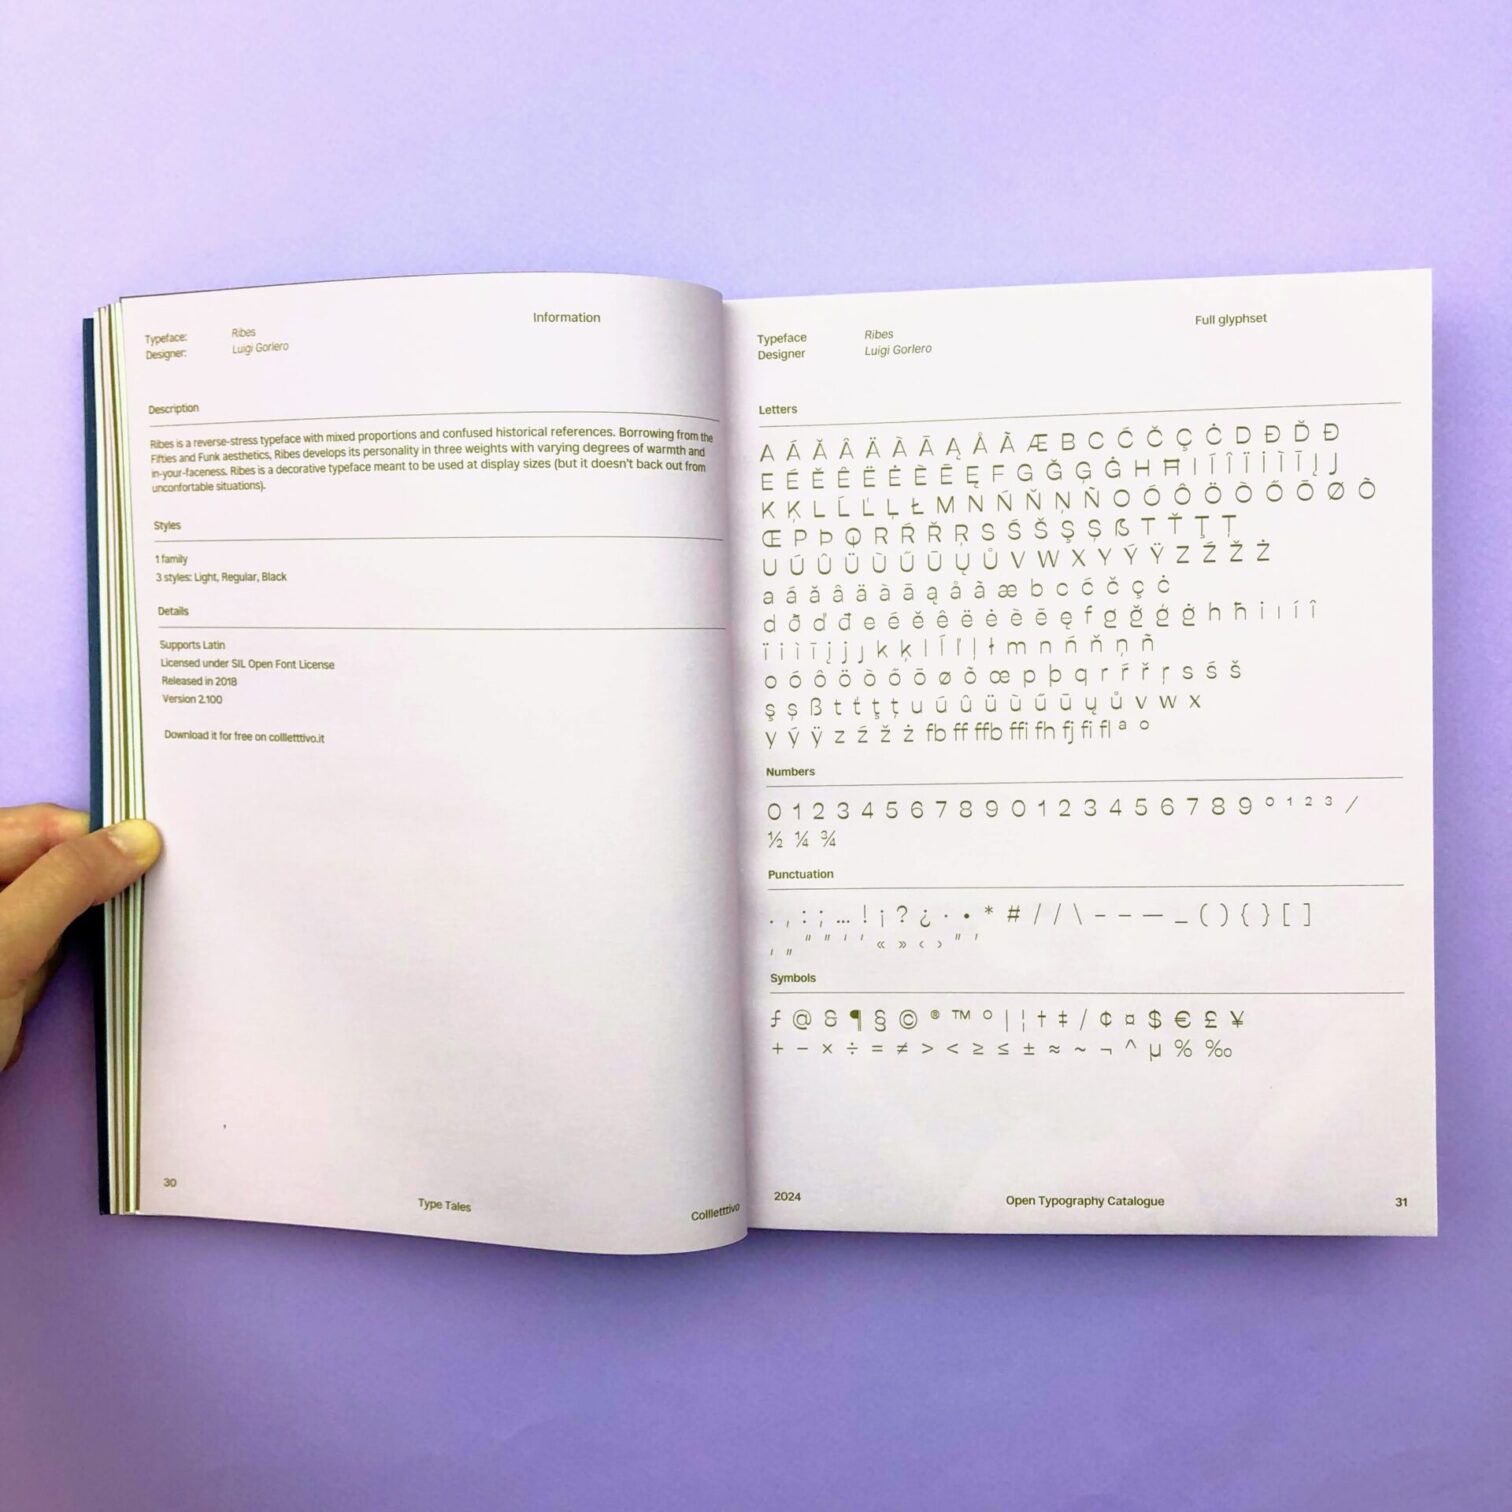 Information
Typeface: Ribes
Designer: Luigi Gorlero
Description
Ribes is a reverse-stress typeface with mixed proportions and confused historical references. Borrowing from the
Fifties and Funk aesthetics, Ribes develops its personality in three weights with varying degrees of warmth and
in-your-faceness. Ribes is a decorative typeface meant to be used at display sizes (but it doesn't back out from
unconfortable situations).
Styles
1 family
3 styles: Light, Regular, Black
Details
Supports Latin
Licensed under SIL Open Font License
Released in 2018
Version 2.100
Download it for free on collletttivo.it
30
Type Tales
Collletttivo
Full glyphset
Typeface Ribes
Designer Luigi Gorlero
Letters
A Á Ă Â Ä À Ā Ą Å Ã Æ B C Ć Č Ç Ċ D Ð Ď Đ
E É Ě Ê Ë Ė È Ē Ę F G Ğ Ģ Ġ H Ħ I Í Î Ï İ Ì Ī Į J
K Ķ L Ĺ Ľ Ļ Ł M N Ń Ň Ņ Ñ O Ó Ô Ö Ò Ő Ō Ø Õ
Œ P Þ Q R Ŕ Ř Ŗ S Ś Š Ş Ș ẞ T Ť Ţ Ț
U Ú Û Ü Ù Ű Ū Ų Ů V W X Y Ý Ÿ Z Ź Ž Ż
a á ă â ä à ā ą å ã æ b c ć č ç ċ
d ð ď đ e é ě ê ë ė è ē ę f g ğ ģ ġ h ħ i ı í î
ï i ì ī į j ȷ k ķ l ĺ ľ ļ ł m n ń ň ņ ñ
o ó ô ö ò ő ō ø õ œ p þ q r ŕ ř ŗ s ś š
ş ș ß t ť ţ ț u ú û ü ù ű ū ų ů v w x
y ý ÿ z ź ž ż fb ff ffb ffi fh fj fi fl ª º
Numbers
0 1 2 3 4 5 6 7 8 9 0 1 2 3 4 5 6 7 8 9 ⁰ ¹ ² ³ ⁄
½ ¼ ¾
Punctuation
. , : ; … ! ¡ ? ¿ · • * # / / \ - – — _ ( ) { } [ ]
‚ „ “ ” ‘ ’ « » ‹ › " '
Symbols
ƒ @ & ¶ § © ® ™ ° | ¦ † ‡ / ¢ ¤ $ € £ ¥
+ − × ÷ = ≠ > < ≥ ≤ ± ≈ ~ ¬ ^ µ % ‰
2024
Open Typography Catalogue
31